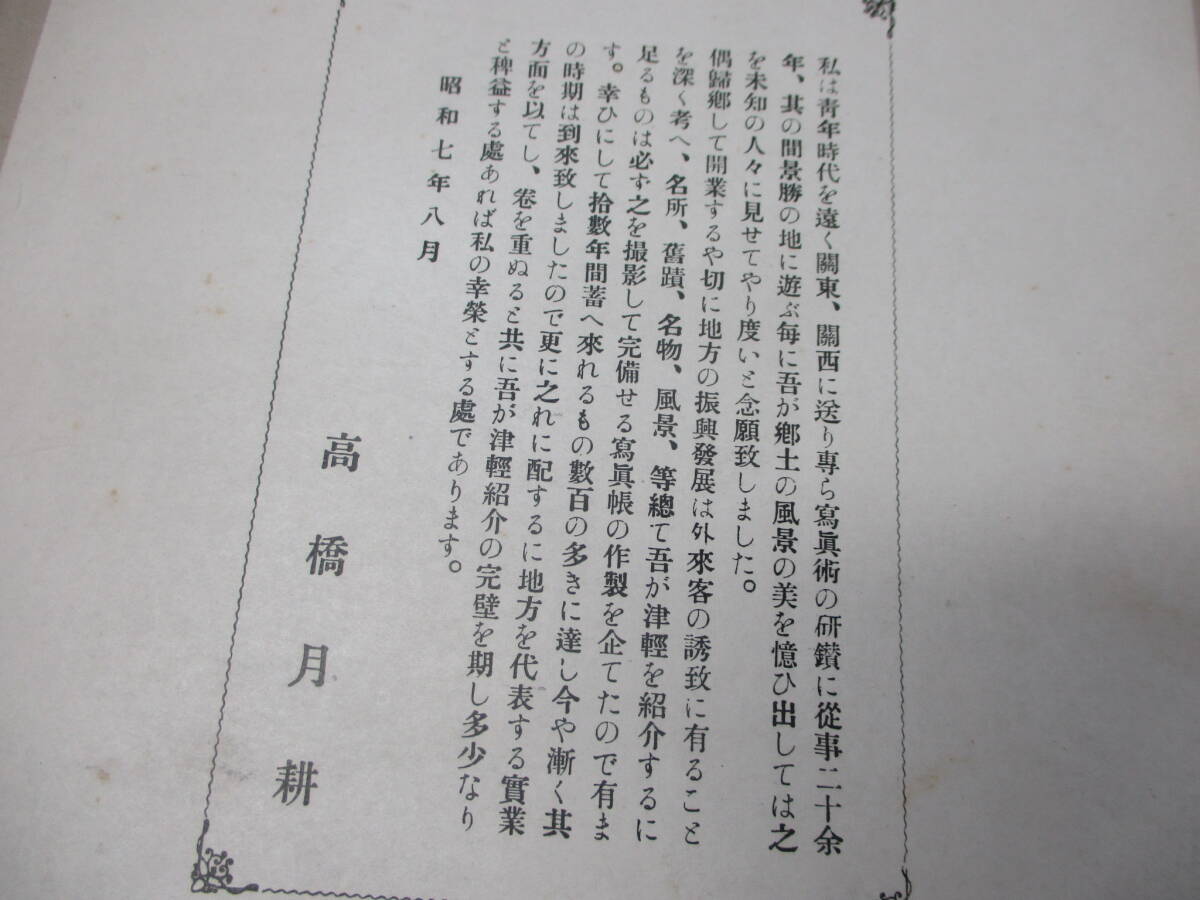 私は靑年時代を遠く關東、關西に送り專ら寫眞術の硏鑚に從事二十余
年、其の間景勝の地に遊ぶ每に吾が鄕土の風景の美を憶ひ出しては之
を未知の人々に見せてやり度いと念願致しました。
偶歸鄕して開業するや切に地方の振興發展は外來客の誘致に有ること
を深く考へ、名所、舊蹟、名物、風景、等總て吾が津輕を紹介するに
足るものは必ず之を撮影して完備せる寫眞帳の作製を企てたので有ま
す。幸ひにして拾數年間蓄へ來れるもの數百の多きに達し今や漸く其
の時期は到來致しましたので更に之れに配するに地方を代表する實業
方面を以てし、卷を重ぬると共に吾が津輕紹介の完壁を期し多少なり
と稗益する處あれば私の幸榮とする處であります。
昭和七年八月
高橋月耕